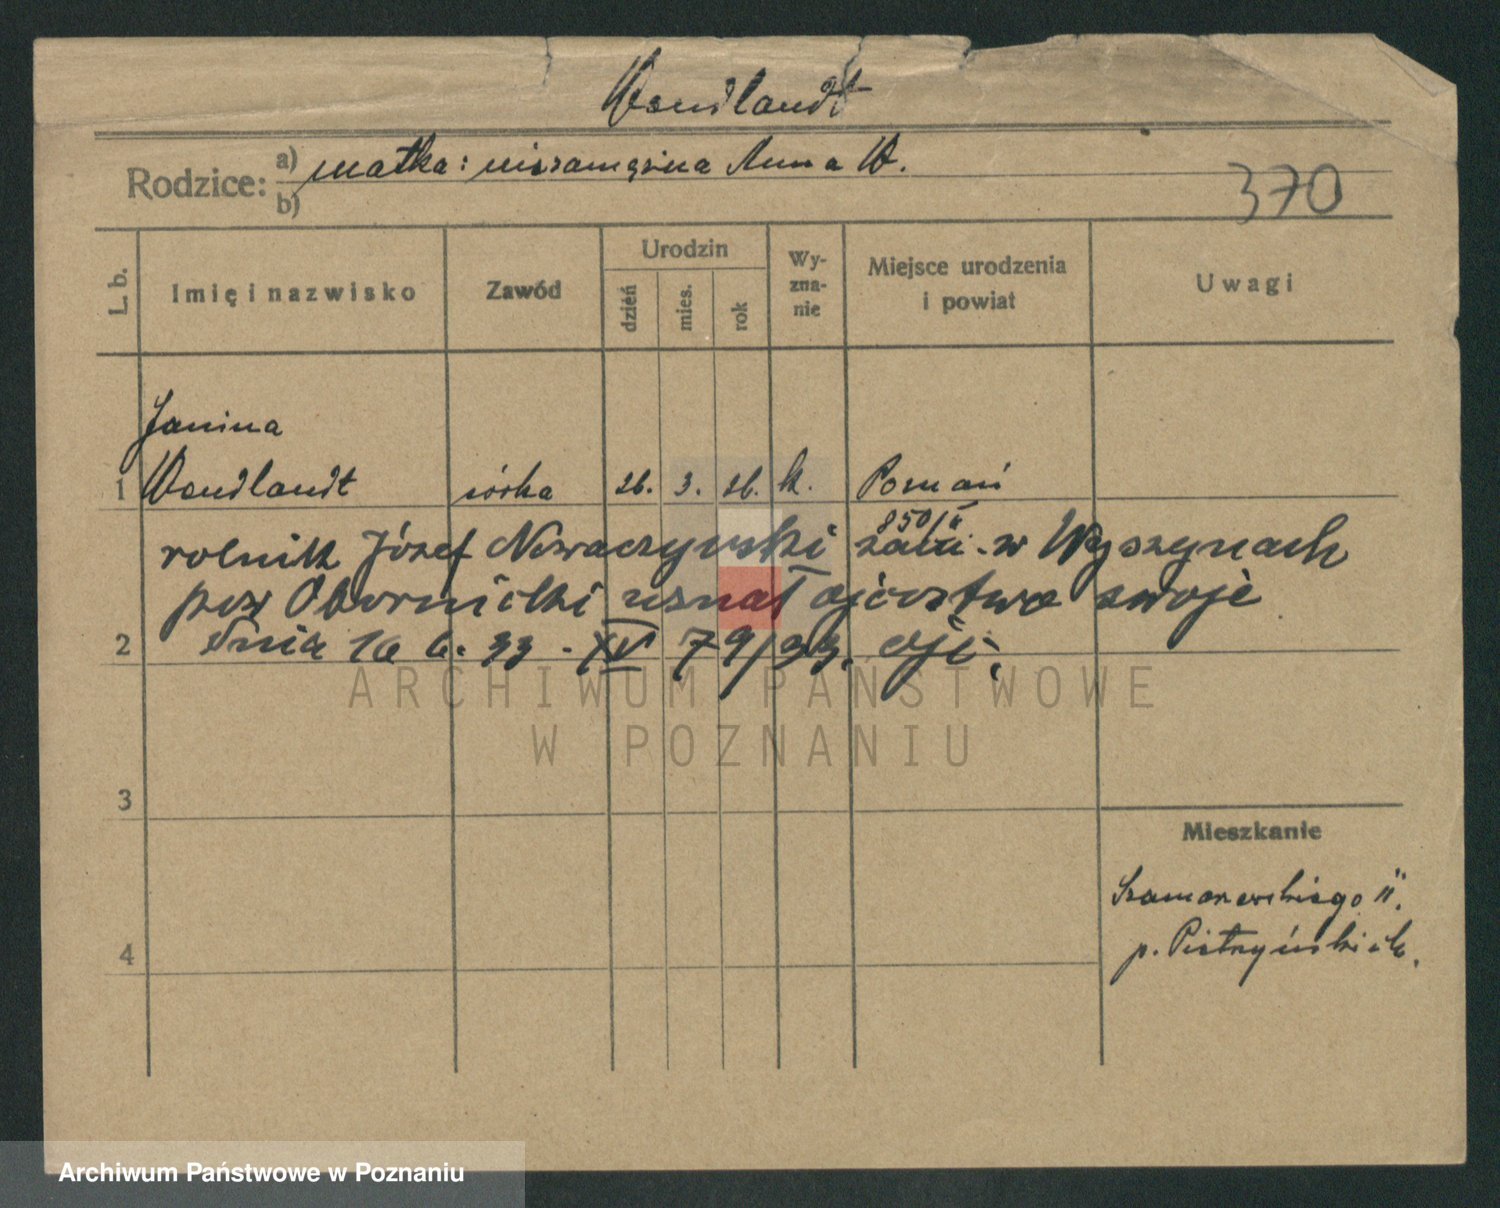 Wendlandt
Rodzice: a) matka: niezamężna Anna W.
b)
370
L. b.
Imię i nazwisko
Zawód
Urodzin
dzień
mies.
rok
Wy-
zna-
nie
Miejsce urodzenia
i powiat
Uwagi
Janina
1 Wendlandt córka 26. 3. 26. k. Poznań
850/II
rolnik Józef Nowaczewski zam. w Wyszynach
pow Obornicki uznał ojcostwo swoje
2 dnia 16 6. 33. XV 79/33.
3
4
Mieszkanie
Szamarzewskiego 11.
p.
ARCHIWUM PAŃSTWOWE
W POZNANIU
Archiwum Państwowe w Poznaniu